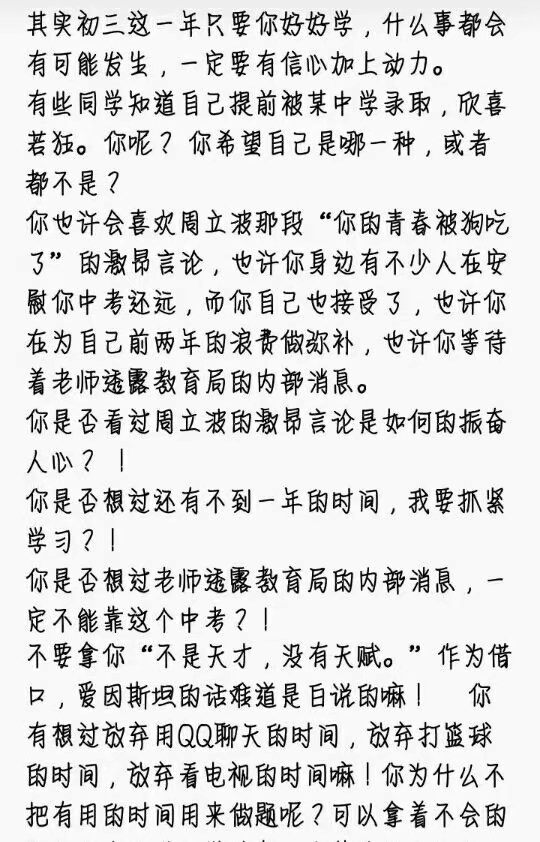 其实初三这一年只要你好好学，什么事都会
有可能发生，一定要有信心加上动力。
有些同学知道自己提前被某中学录取，欣喜
若狂。你呢？你希望自己是哪一种，或者
都不是？
你也许会喜欢周立波那段“你的青春被狗吃
了”的激昂言论，也许你身边有不少人在安
慰你中考还远，而你自己也接受了，也许你
在为自己前两年的浪费做弥补，也许你等待
着老师透露教育局的内部消息。
你是否看过周立波的激昂言论是如何的振奋
人心？！
你是否想过还有不到一年的时间，我要抓紧
学习？！
你是否想过老师透露教育局的内部消息，一
定不能靠这个中考？！
不要拿你“不是天才，没有天赋。”作为借
口，爱因斯坦的话难道是白说的嘛！ 你
有想过放弃用QQ聊天的时间，放弃打篮球
的时间，放弃看电视的时间嘛！你为什么不
把有用的时间用来做题呢？可以拿着不会的